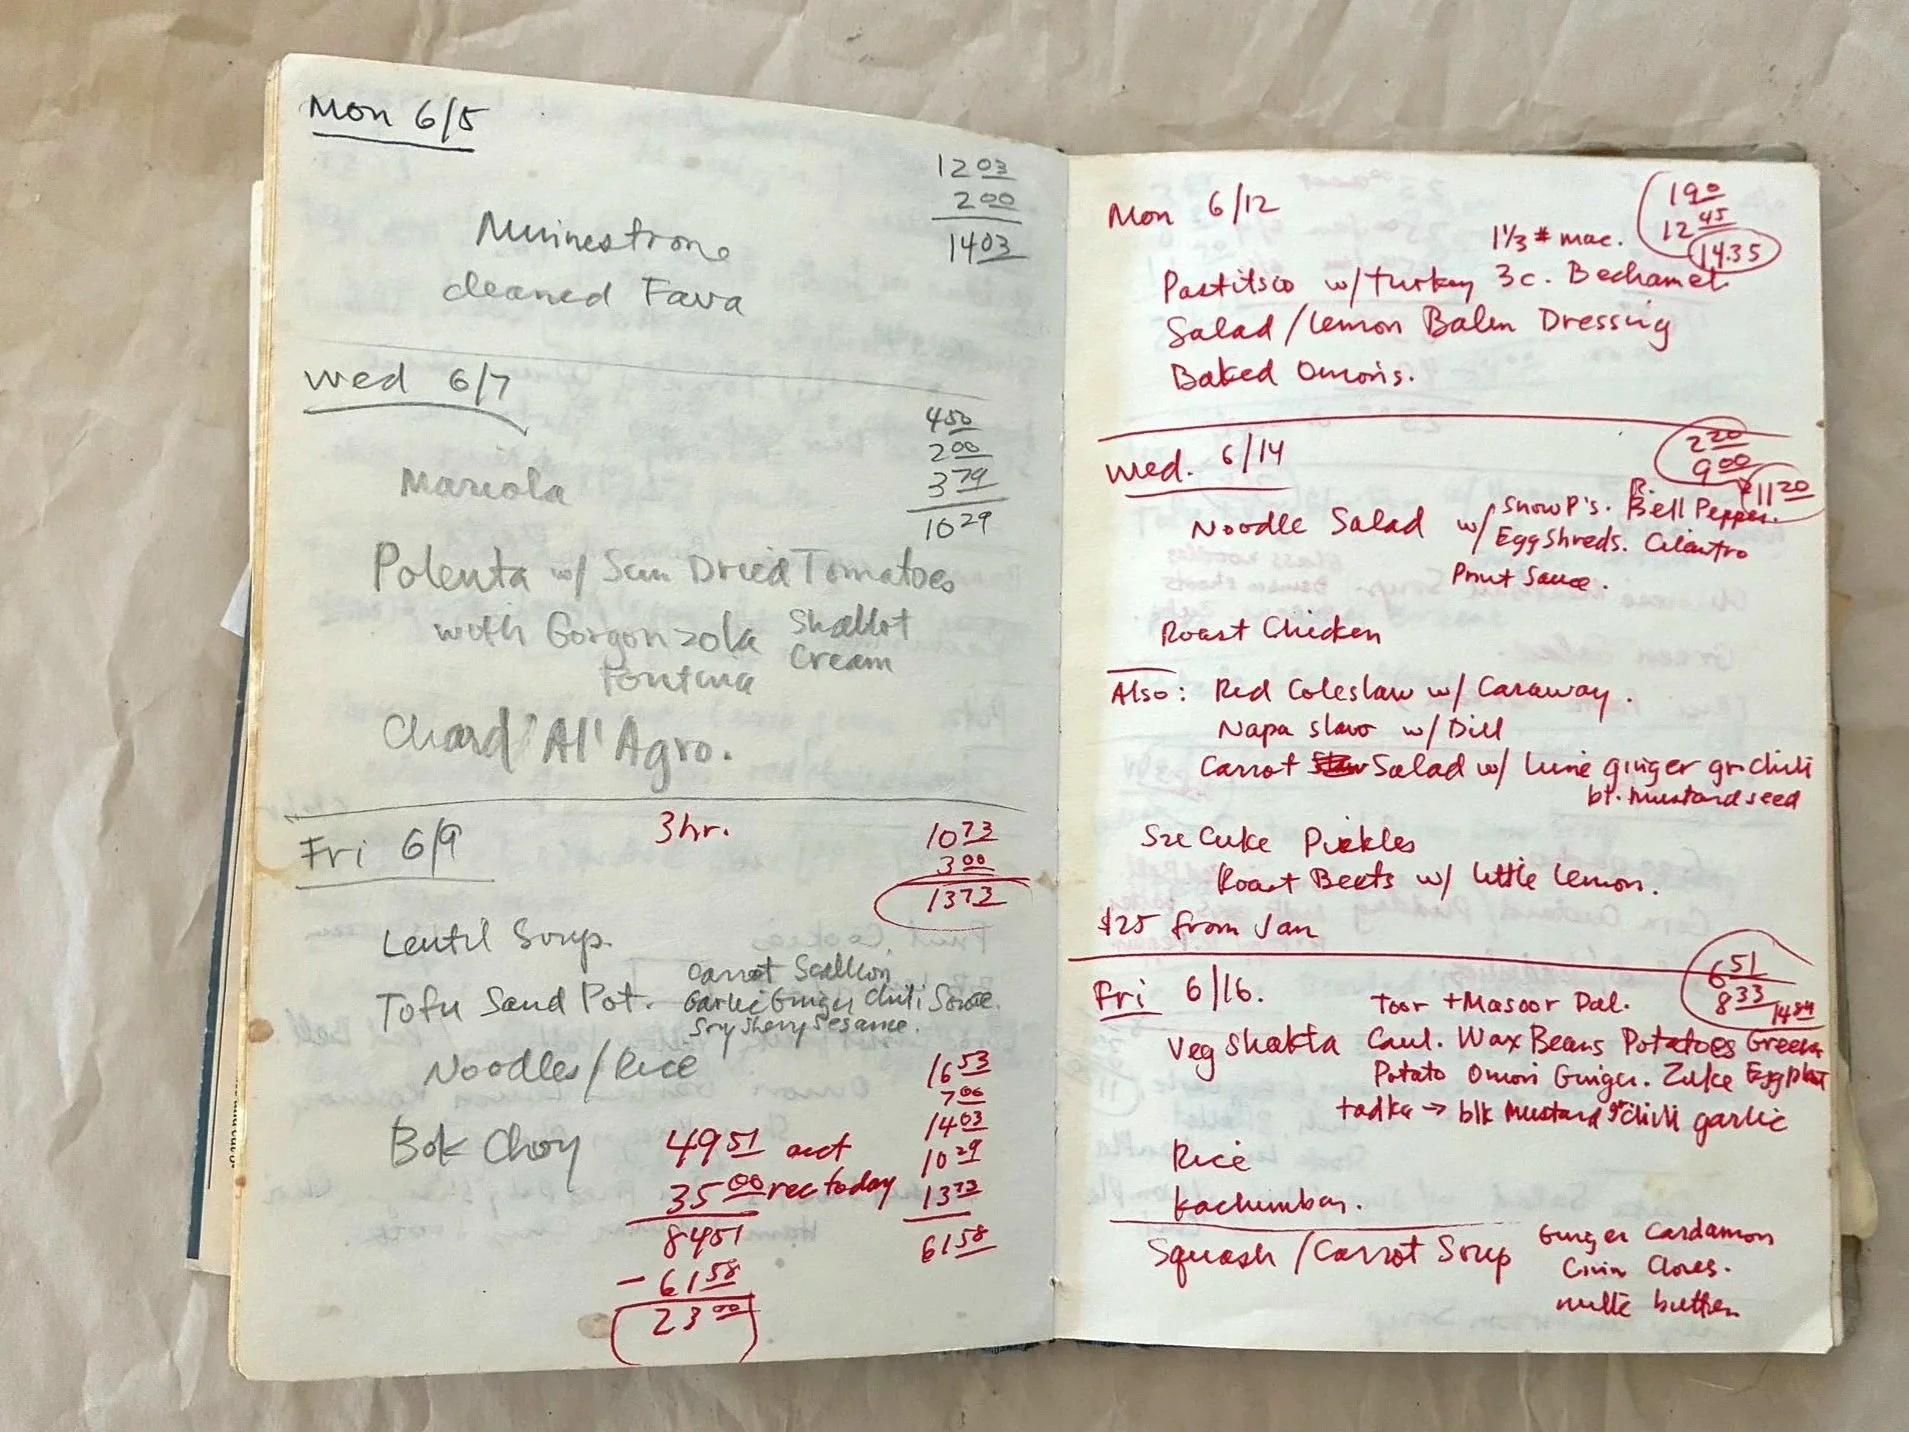 Mon 6/5
12 03
2 00
14 03
Minestrone
cleaned Fava
Wed 6/7
4 50
2 00
3 79
10 29
Mariola
Polenta w/ Sun Dried Tomatoes
with Gorgonzola Shallot
Fontina Cream
Chard 'Al' Agro.
Fri 6/9 3 hr.
10 73
3 00
13 73
Lentil Soup.
Tofu Sand Pot. Carrot Scallion
Garlic Ginger Chili Sauce
Soy Sherry Sesame.
Noodles/Rice
Bok Choy
16 53
7 00
14 03
10 29
13 73
61 58
49 51 act
35 00 rec today
84 51
- 61 58
23 00
Mon 6/12
1 90
12 45
14.35
1 1/3 # mac.
Pastitsio w/ turkey 3c. Bechamel
Salad / Lemon Balm Dressing
Baked Onions.
Wed. 6/14
2 20
9 00
11 20
Noodle Salad w/ Snow P's. R. Bell Pepper.
Egg Shreds. Cilantro
Pnut Sauce.
Roast Chicken
Also: Red Coleslaw w/ Caraway.
Napa slaw w/ Dill
Carrot Slaw Salad w/ Lime ginger gr. chili
bl. mustard seed
Sze Cuke Pickles
Roast Beets w/ little lemon.
$25 from Jan
Fri 6/16.
6 51
8 33
14 84
Toor + Masoor Dal.
Veg Shakta Caul. Wax Beans Potatoes Greens
Potato Onion Ginger. Zuke Eggplant
tadka → blk mustard gr chili garlic
Rice
Kachumbar.
Squash / Carrot Soup Ginger Cardamon
Cinin Cloves.
milk butter